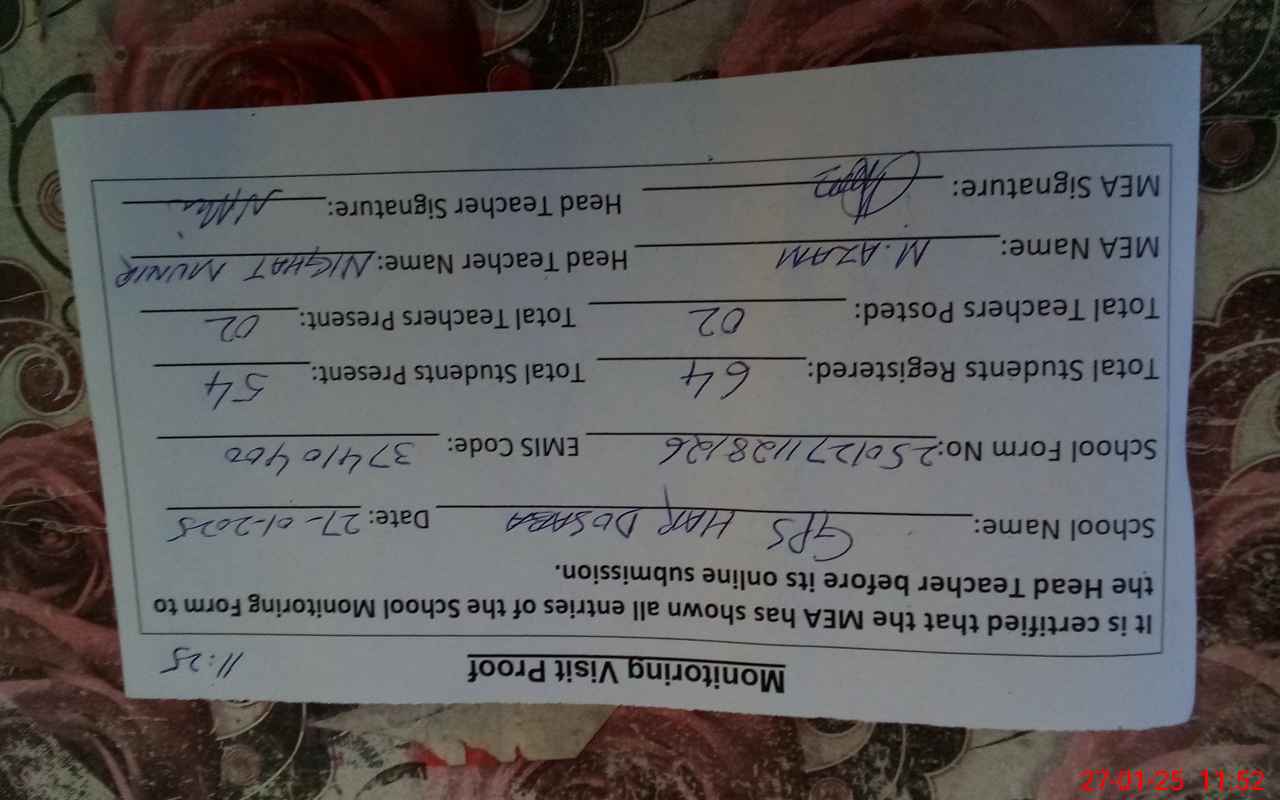 Monitoring Visit Proof 11:25
It is certified that the MEA has shown all entries of the School Monitoring Form to
the Head Teacher before its online submission.
School Name: GPS HAR DOSABA Date: 27-01-2025
School Form No: 2501271128126 EMIS Code: 37410400
Total Students Registered: 64 Total Students Present: 54
Total Teachers Posted: 02 Total Teachers Present: 02
MEA Name: M. AZAM Head Teacher Name: NIGHAT MUNIR
MEA Signature: Head Teacher Signature:
27-01-25 11:52